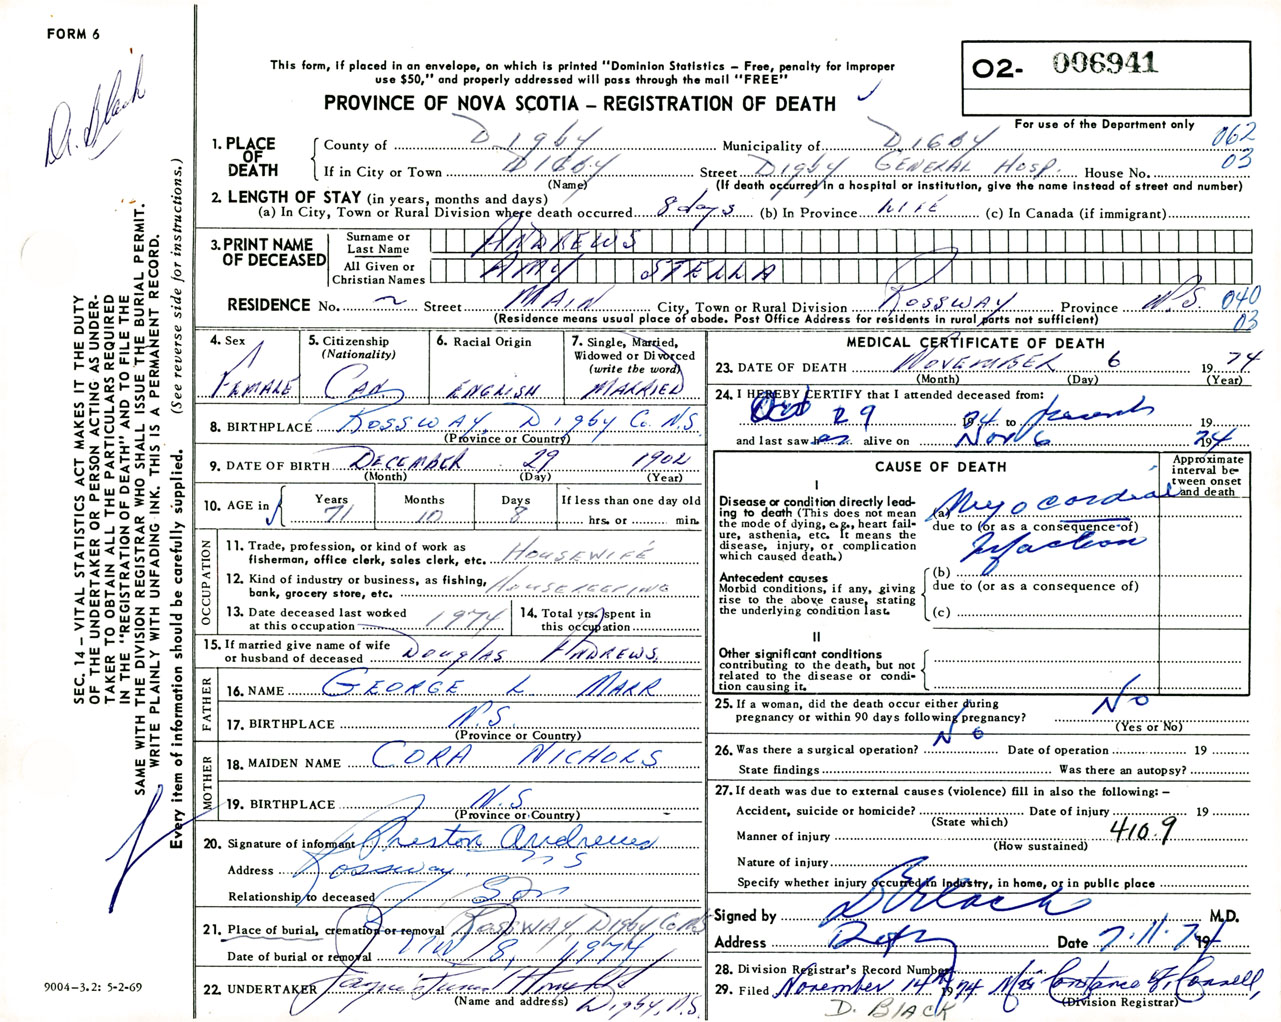 FORM 6
Dr. Black
This form, if placed in an envelope, on which is printed "Dominion Statistics – Free, penalty for improper
use $50," and properly addressed will pass through the mail "FREE"
PROVINCE OF NOVA SCOTIA – REGISTRATION OF DEATH
O2- 006941
For use of the Department only
062
03
1. PLACE OF DEATH
County of Digby Municipality of DIGBY
If in City or Town DIGBY Street DIGBY GENERAL HOSP. House No.
(Name) (If death occurred in a hospital or institution, give the name instead of street and number)
2. LENGTH OF STAY (in years, months and days)
(a) In City, Town or Rural Division where death occurred 8 days (b) In Province LIFE (c) In Canada (if immigrant)
3. PRINT NAME OF DECEASED
Surname or Last Name ANDREWS
All Given or Christian Names AMY STELLA
RESIDENCE No. ~ Street MAIN City, Town or Rural Division ROSSWAY Province N.S. 040
03
(Residence means usual place of abode. Post Office Address for residents in rural parts not sufficient)
4. Sex FEMALE
5. Citizenship (Nationality) CAN
6. Racial Origin ENGLISH
7. Single, Married, Widowed or Divorced (write the word) MARRIED
8. BIRTHPLACE ROSSWAY, DIGBY Co. N.S.
(Province or Country)
9. DATE OF BIRTH DECEMBER 29 1902
(Month) (Day) (Year)
10. AGE in Years 71 Months 10 Days 8 If less than one day old hrs. or min.
OCCUPATION
11. Trade, profession, or kind of work as
fisherman, office clerk, sales clerk, etc. HOUSEWIFE
12. Kind of industry or business, as fishing,
bank, grocery store, etc. HOUSEKEEPING
13. Date deceased last worked
at this occupation 1974
14. Total yrs. spent in
this occupation
15. If married give name of wife
or husband of deceased DOUGLAS ANDREWS
FATHER
16. NAME GEORGE L MARR
17. BIRTHPLACE N.S.
(Province or Country)
MOTHER
18. MAIDEN NAME CORA NICHOLS
19. BIRTHPLACE N.S
(Province or Country)
20. Signature of informant Preston Andrews
Address Rossway, N S
Relationship to deceased Son
21. Place of burial, cremation or removal ROSSWAY, DIGBY Co NS
Date of burial or removal Nov 8, 1974
22. UNDERTAKER
(Name and address) Digby, N.S.
MEDICAL CERTIFICATE OF DEATH
23. DATE OF DEATH NOVEMBER 6 1974
(Month) (Day) (Year)
24. I HEREBY CERTIFY that I attended deceased from:
Oct 29 74 to 19
and last saw her alive on Nov 6 1974
CAUSE OF DEATH
Approximate interval between onset and death
I
Disease or condition directly lead-
ing to death (This does not mean
the mode of dying, e.g., heart fail-
ure, asthenia, etc. It means the
disease, injury, or complication
which caused death.)
(a) Myocardial
due to (or as a consequence of)
Infarction
Antecedent causes
Morbid conditions, if any, giving
rise to the above cause, stating
the underlying condition last.
(b)
due to (or as a consequence of)
(c)
II
Other significant conditions
contributing to the death, but not
related to the disease or condi-
tion causing it.
25. If a woman, did the death occur either during
pregnancy or within 90 days following pregnancy? No
(Yes or No)
26. Was there a surgical operation? No Date of operation 19
State findings Was there an autopsy?
27. If death was due to external causes (violence) fill in also the following: –
Accident, suicide or homicide? Date of injury 19
(State which)
Manner of injury 410.9
(How sustained)
Nature of injury
Specify whether injury occurred in Industry, in home, or in public place
Signed by Black M.D.
Address Digby Date 7.11.74 19
28. Division Registrar's Record Number
29. Filed November 14th 1974 Mrs Constance Connell,
(Division Registrar)
D. BLACK
SEC. 14 – VITAL STATISTICS ACT MAKES IT THE DUTY
OF THE UNDERTAKER OR PERSON ACTING AS UNDER-
TAKER TO OBTAIN ALL THE PARTICULARS REQUIRED
IN THE "REGISTRATION OF DEATH" AND TO FILE THE
SAME WITH THE DIVISION REGISTRAR WHO SHALL ISSUE THE BURIAL PERMIT.
WRITE PLAINLY WITH UNFADING INK. THIS IS A PERMANENT RECORD.
Every item of information should be carefully supplied. (See reverse side for instructions.)
9004-3.2: 5-2-69